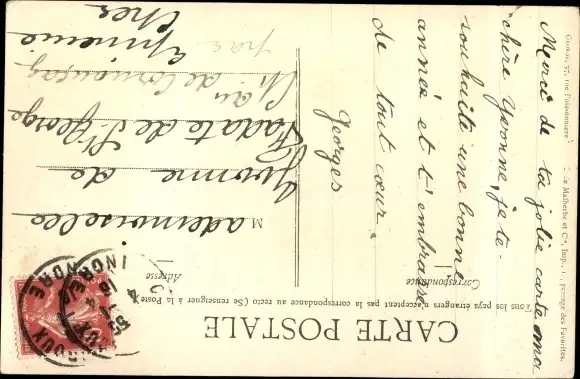 CARTE POSTALE
Tous les pays étrangers n'acceptent pas la correspondance au recto (Se renseigner à la Poste
Correspondance
Adresse
Merci de ta jolie carte ma
chère Yvonne, je te
souhaite une bonne
année et t'embrasse
de tout cœur.
Georges
Mademoiselle
Yvonne de
Nadate de St George
au
de
par
Epineuil
Cher
INDRE
37, rue Poissonnière
Malherbe et Cie, Imp., passage des Favorites.